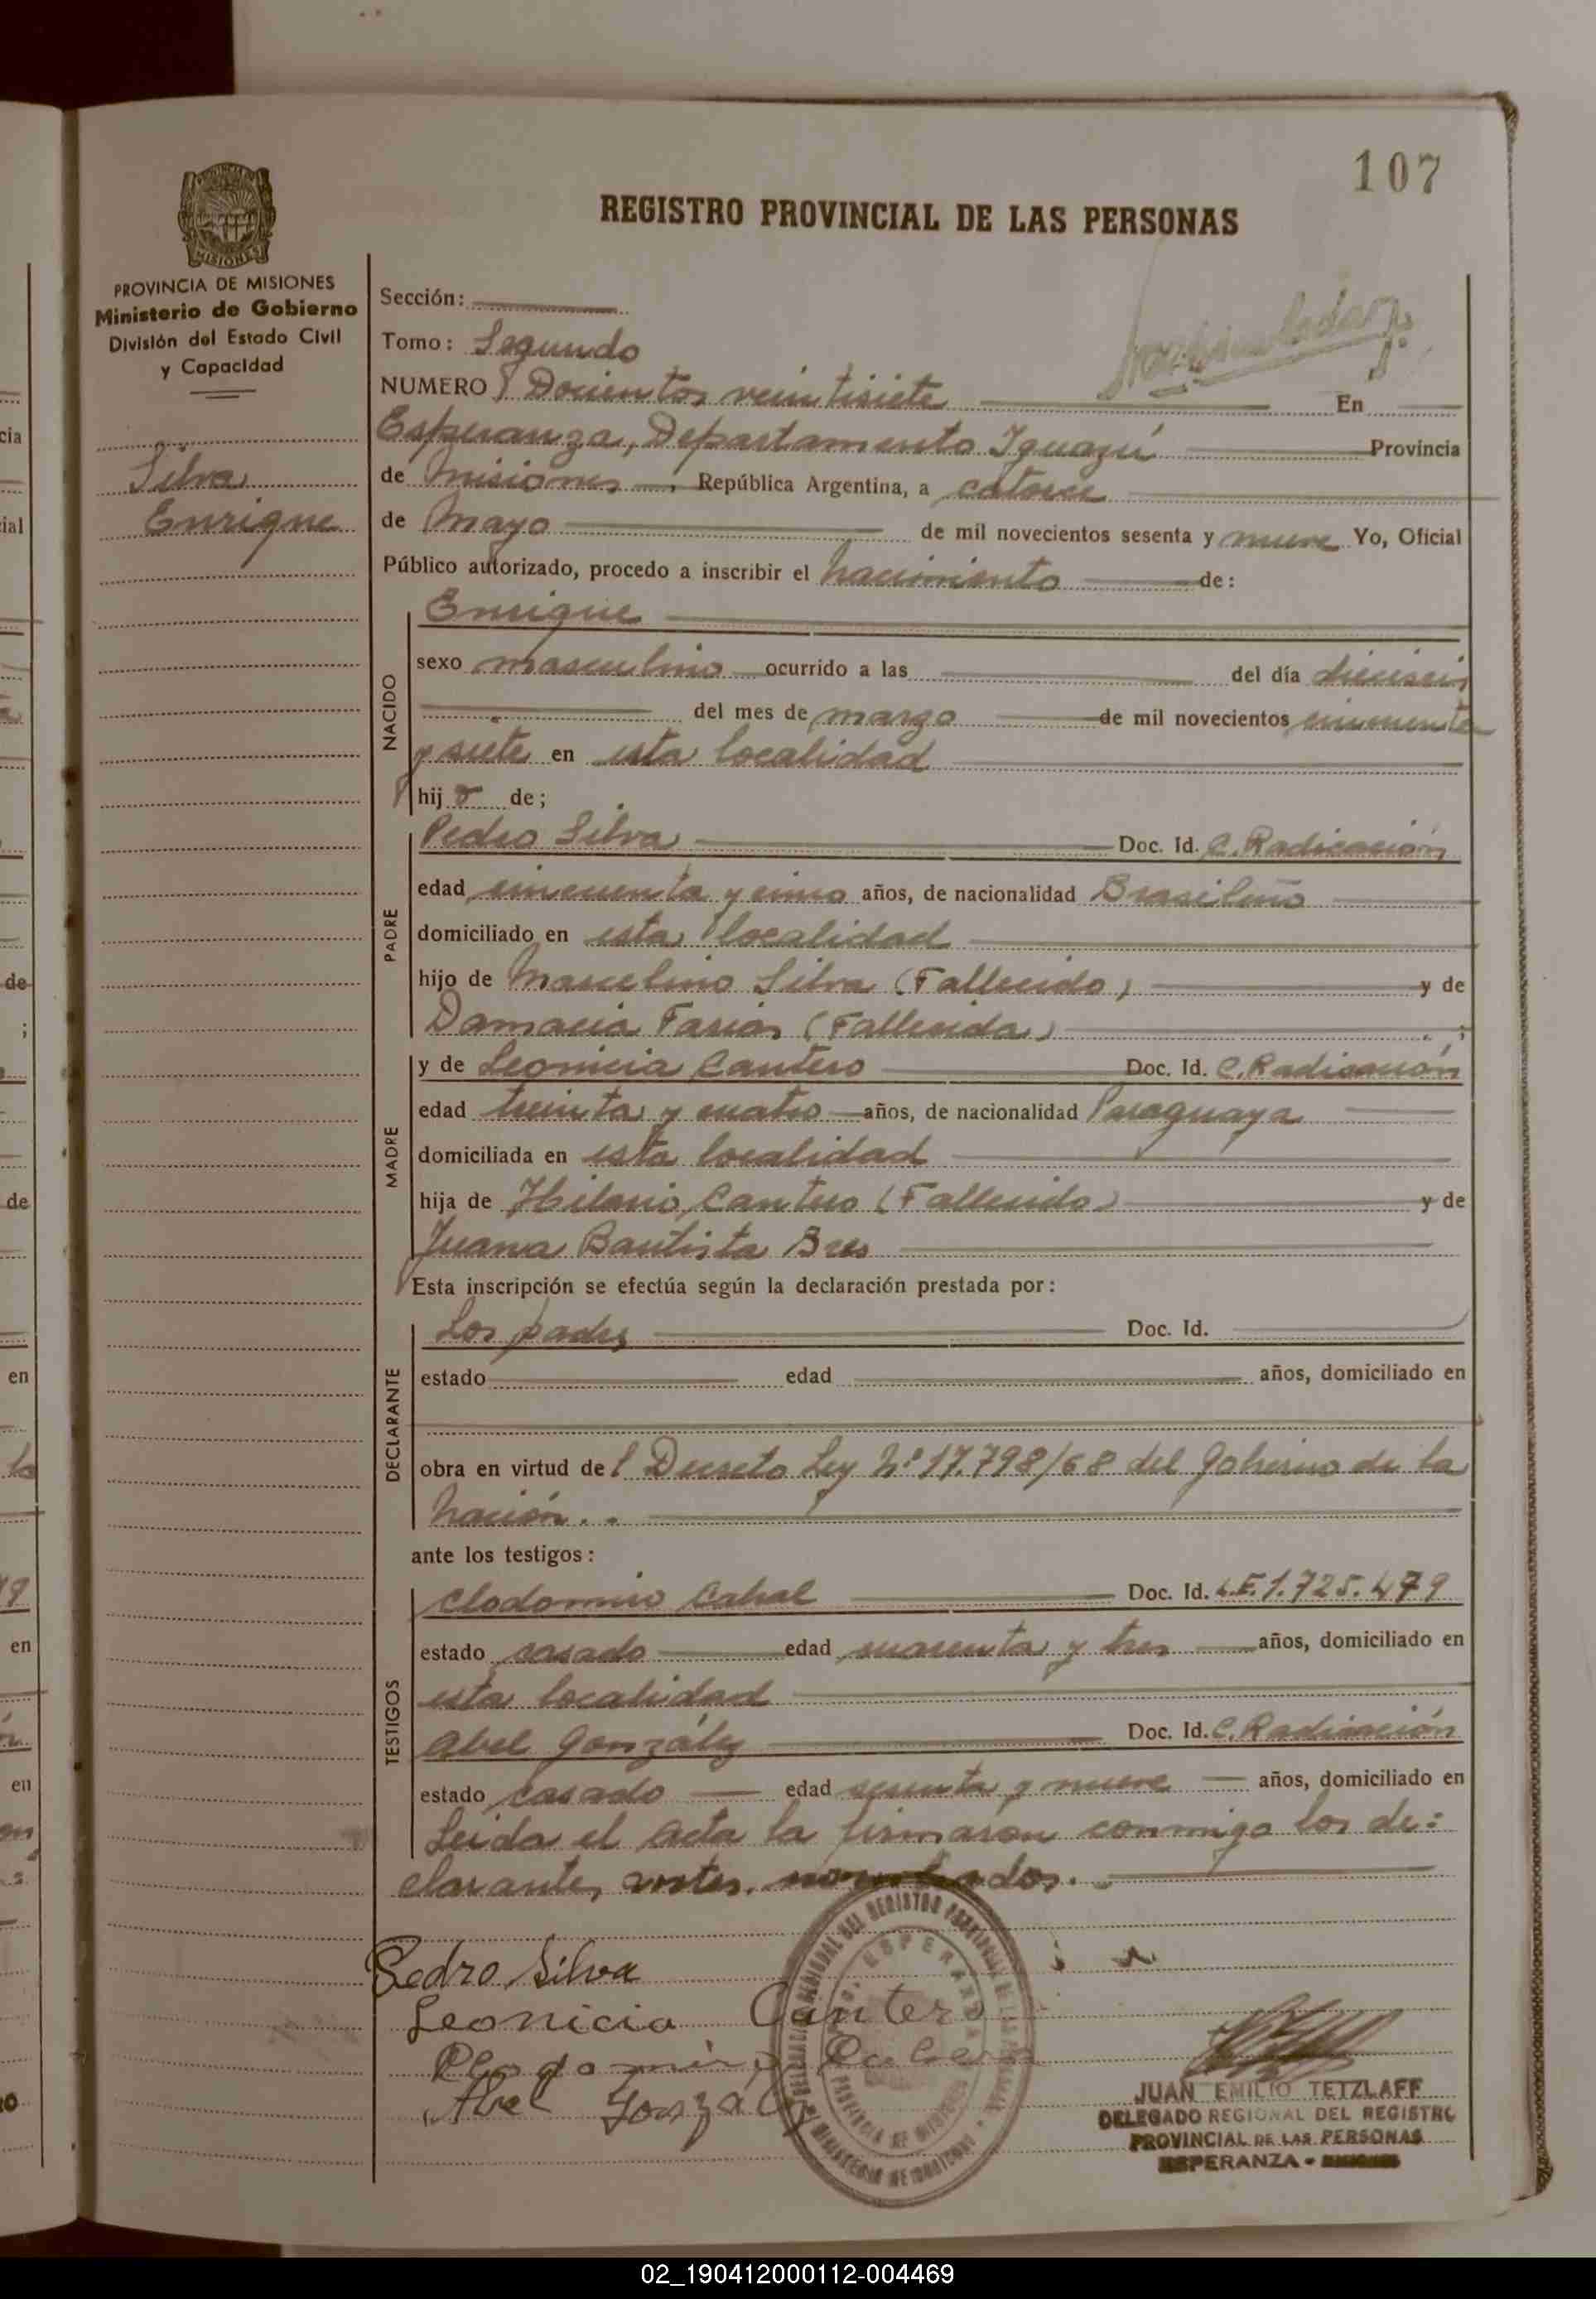 107
REGISTRO PROVINCIAL DE LAS PERSONAS
MISIONES
PROVINCIA DE MISIONES
Ministerio de Gobierno
División del Estado Civil
y Capacidad
Silva
Enrique
Sección:
Tomo: Segundo
NUMERO Docientos veintisiete En
Esperanza, Departamento Iguazú Provincia
de Misiones República Argentina, a catorce
de Mayo de mil novecientos sesenta y nueve Yo, Oficial
Público autorizado, procedo a inscribir el nacimiento de:
NACIDO
Enrique
sexo masculino ocurrido a las del día dieciseis
del mes de marzo de mil novecientos cincuenta
y siete en esta localidad
hijo de;
PADRE
Pedro Silva Doc. Id. C. Radicación
edad cincuenta y cinco años, de nacionalidad Brasileño
domiciliado en esta localidad
hijo de Marcelino Silva (Fallecido) y de
Damacia Farias (Fallecida) ;
MADRE
y de Leonicia Cantero Doc. Id. C. Radicación
edad treinta y cuatro años, de nacionalidad Paraguaya
domiciliada en esta localidad
hija de Hilario Cantero (Fallecido) y de
Juana Bautista Bres
Esta inscripción se efectúa según la declaración prestada por:
DECLARANTE
Los padres Doc. Id.
estado edad años, domiciliado en
obra en virtud del Decreto Ley Nº 17.798/68 del Gobierno de la
Nación..
ante los testigos:
TESTIGOS
Clodomiro Cabral Doc. Id. L.E. 1.725.479
estado casado edad cuarenta y tres años, domiciliado en
esta localidad
Abel González Doc. Id. C. Radicación
estado casado edad sesenta y nueve años, domiciliado en
Leida el acta la firmaron conmigo los de:
clarantes nombrados.
Pedro Silva
Leonicia Cantero
Abel González
JUAN EMILIO TETZLAFF
DELEGADO REGIONAL DEL REGISTRO
PROVINCIAL DE LAS PERSONAS
ESPERANZA - MISIONES
02_190412000112-004469